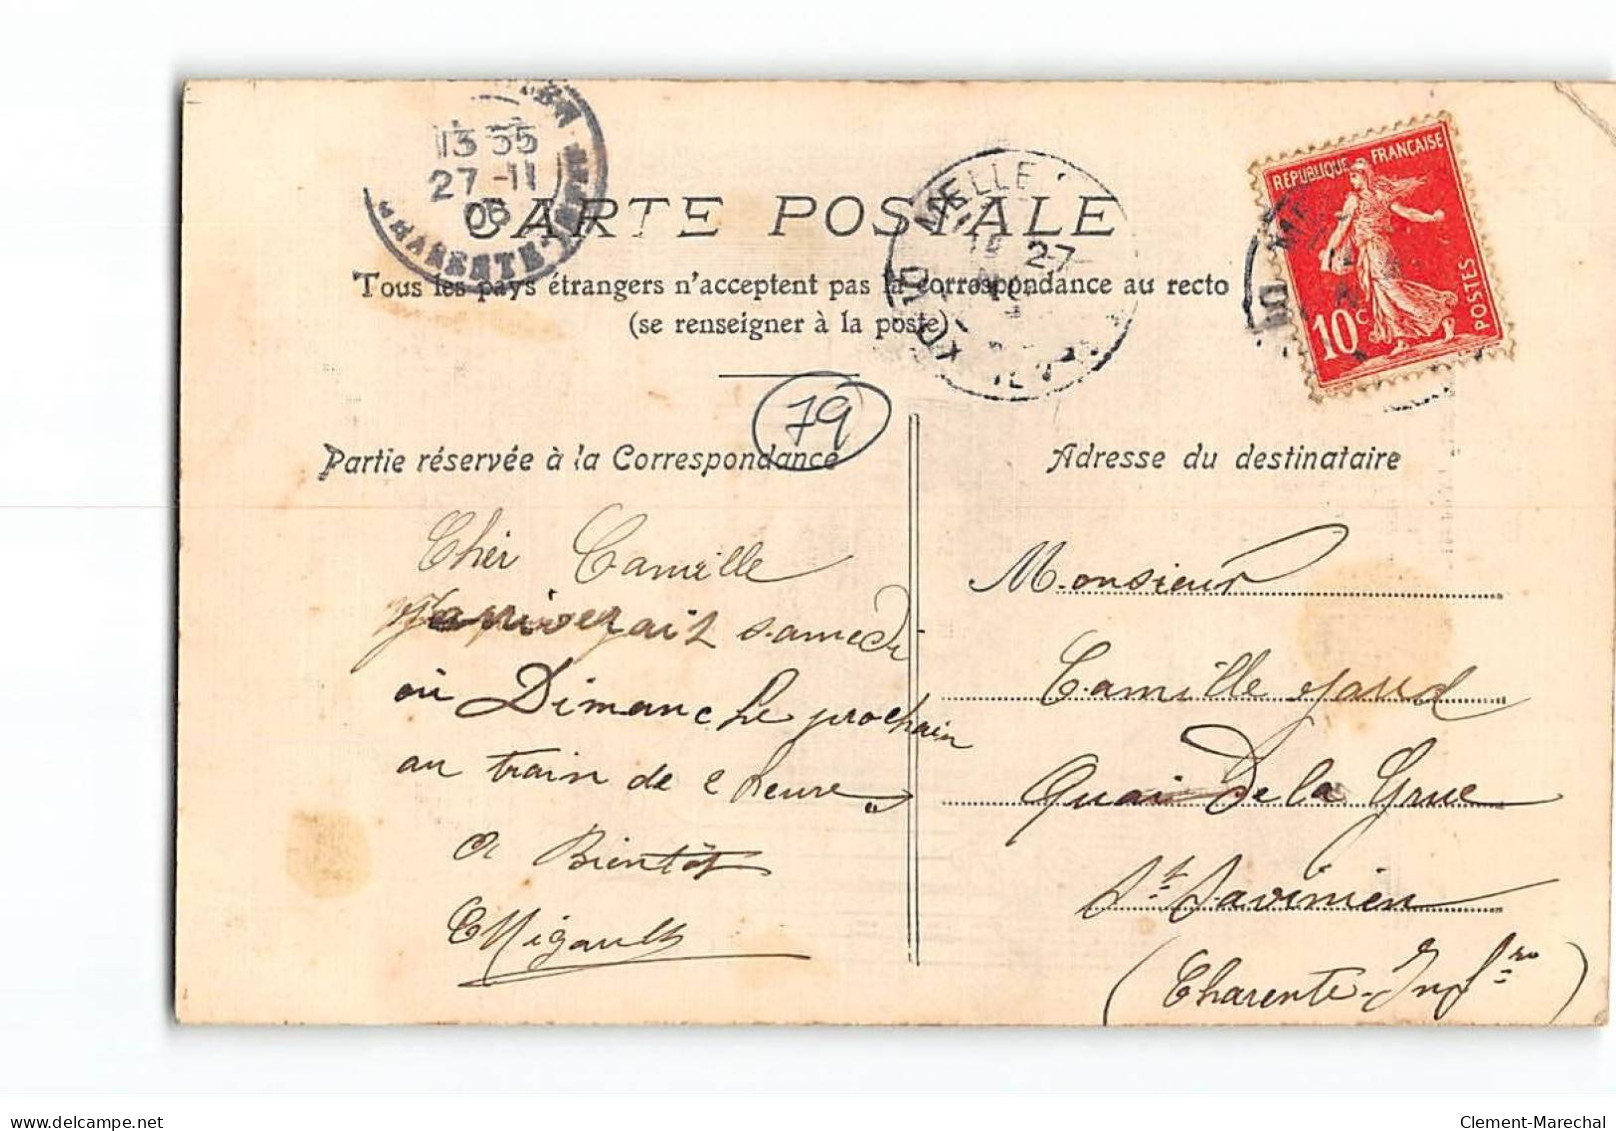 13 35
27 - 11
06
CHARENTE-INFRE
CARTE POSTALE
MELLE
27
REPUBLIQUE FRANÇAISE
10c
POSTES
Tous les pays étrangers n'acceptent pas la correspondance au recto
(se renseigner à la poste)
79
Partie réservée à la Correspondance
Adresse du destinataire
Cher Camille
J'arriverait samedi
ou Dimanche prochain
au train de 2 heure
a Bientôt
CMigault
Monsieur
Camille Jaud
Quai De la Grue
St Savinien
(Charente-Infre)
delcampe.net
Clement-Marechal